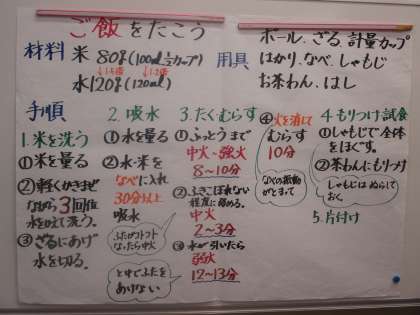 ご飯をたこう
材料 米 80g(100ml ½カップ)
水120g(120ml)
用具
ボール、ざる、計量カップ
はかり、なべ、しゃもじ
お茶わん、はし
手順
1.米を洗う
①米を量る
②軽くかきまぜ
ながら3回位
水をかえて洗う。
③ざるにあげ
水を切る。
2.吸水
①水を量る
②水・米を
なべに入れ
30分以上
吸水
ふたがコトコト
なったら中火
とちゅうでふたを
あけない
3.たく むらす
①ふっとうまで
中火〜強火
8〜10分
②ふきこぼれない
程度に弱める。
中火
2〜3分
③水が引いたら
弱火
12〜13分
④火を消して
むらす
10分
なべの振動
がとまって
4 もりつけ試食
①しゃもじで全体
をほぐす。
②茶わんにもりつけ
しゃもじはぬらして
おく。
5.片付け